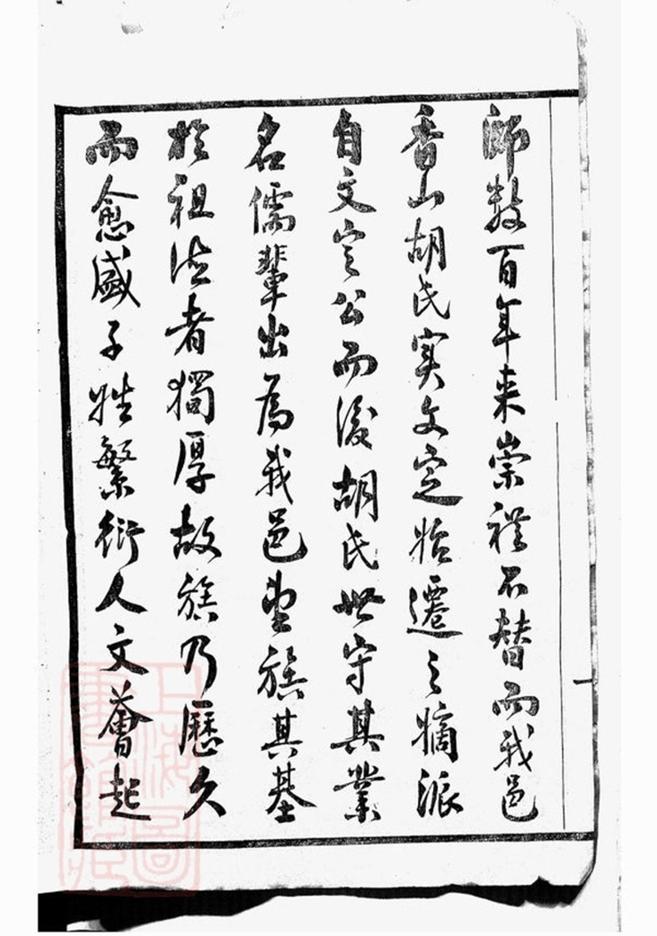 師數百年来崇禮不替而我邑
香山胡氏實文定始遷之嫡派
自文定公而後胡氏世守其業
名儒輩出為我邑望族其基
於祖德者獨厚故族乃歷久
而愈盛子姓繁衍人文薈起
上海圖書館藏